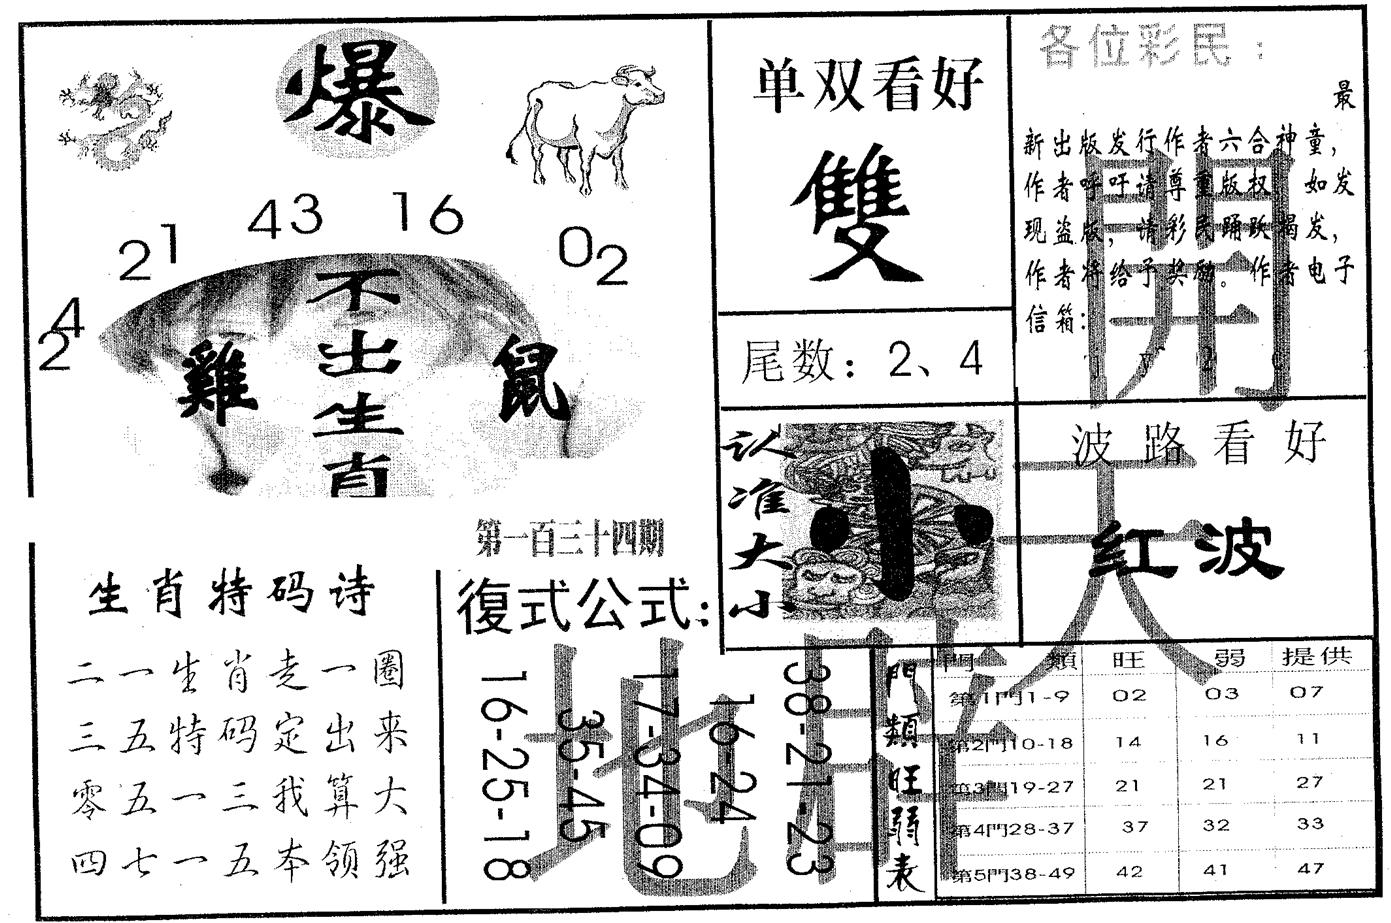 爆
24
21
43
16
02
不出生肖
雞
鼠
第一百三十四期
生肖特码诗
二一生肖走一圈
三五特码定出来
零五一三我算大
四七一五本领强
復式公式:
16-25-18
35-45
17-34-09
16-24
38-21-23
单双看好
雙
尾数：2、4
认准大小
小
各位彩民：
最
新出版发行作者六合神童，
作者呼吁请尊重版权，如发
现盗版，请彩民踊跃揭发，
作者将给予奖励。作者电子
信箱:
波路看好
红波
開
天
地
門類旺弱表
門類 旺 弱 提供
第1門1-9 02 03 07
第2門10-18 14 16 11
第3門19-27 21 21 27
第4門28-37 37 32 33
第5門38-49 42 41 47